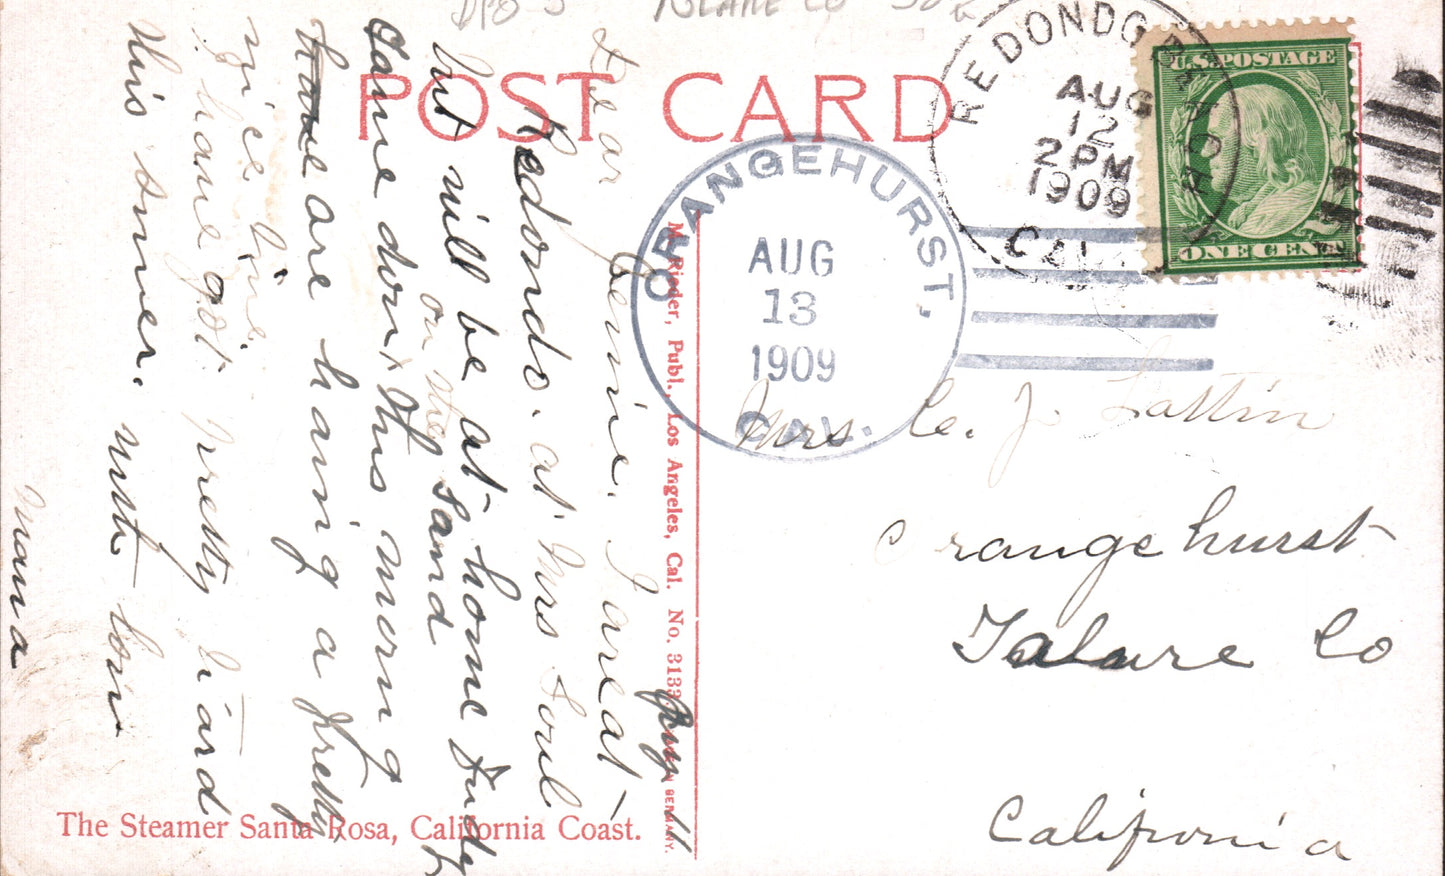 DPO-3 TULARE CO
POST CARD
REDONDO BEACH
AUG
12
2 PM
1909
CAL.
U.S. POSTAGE
ONE CENT
ORANGEHURST,
AUG
13
1909
CAL.
M. Rieder, Publ., Los Angeles, Cal. No. 3133
GERMANY.
Mrs. C. J. Lattin
Orangehurst
Tulare Co
California
Aug 11
Dear I am at
Redondo. at Mrs
but will be at home
on the Sand
came down this morning
have are having a pretty
nice time.
I have got pretty tiard
this sumer. with love
Mama
The Steamer Santa Rosa, California Coast.